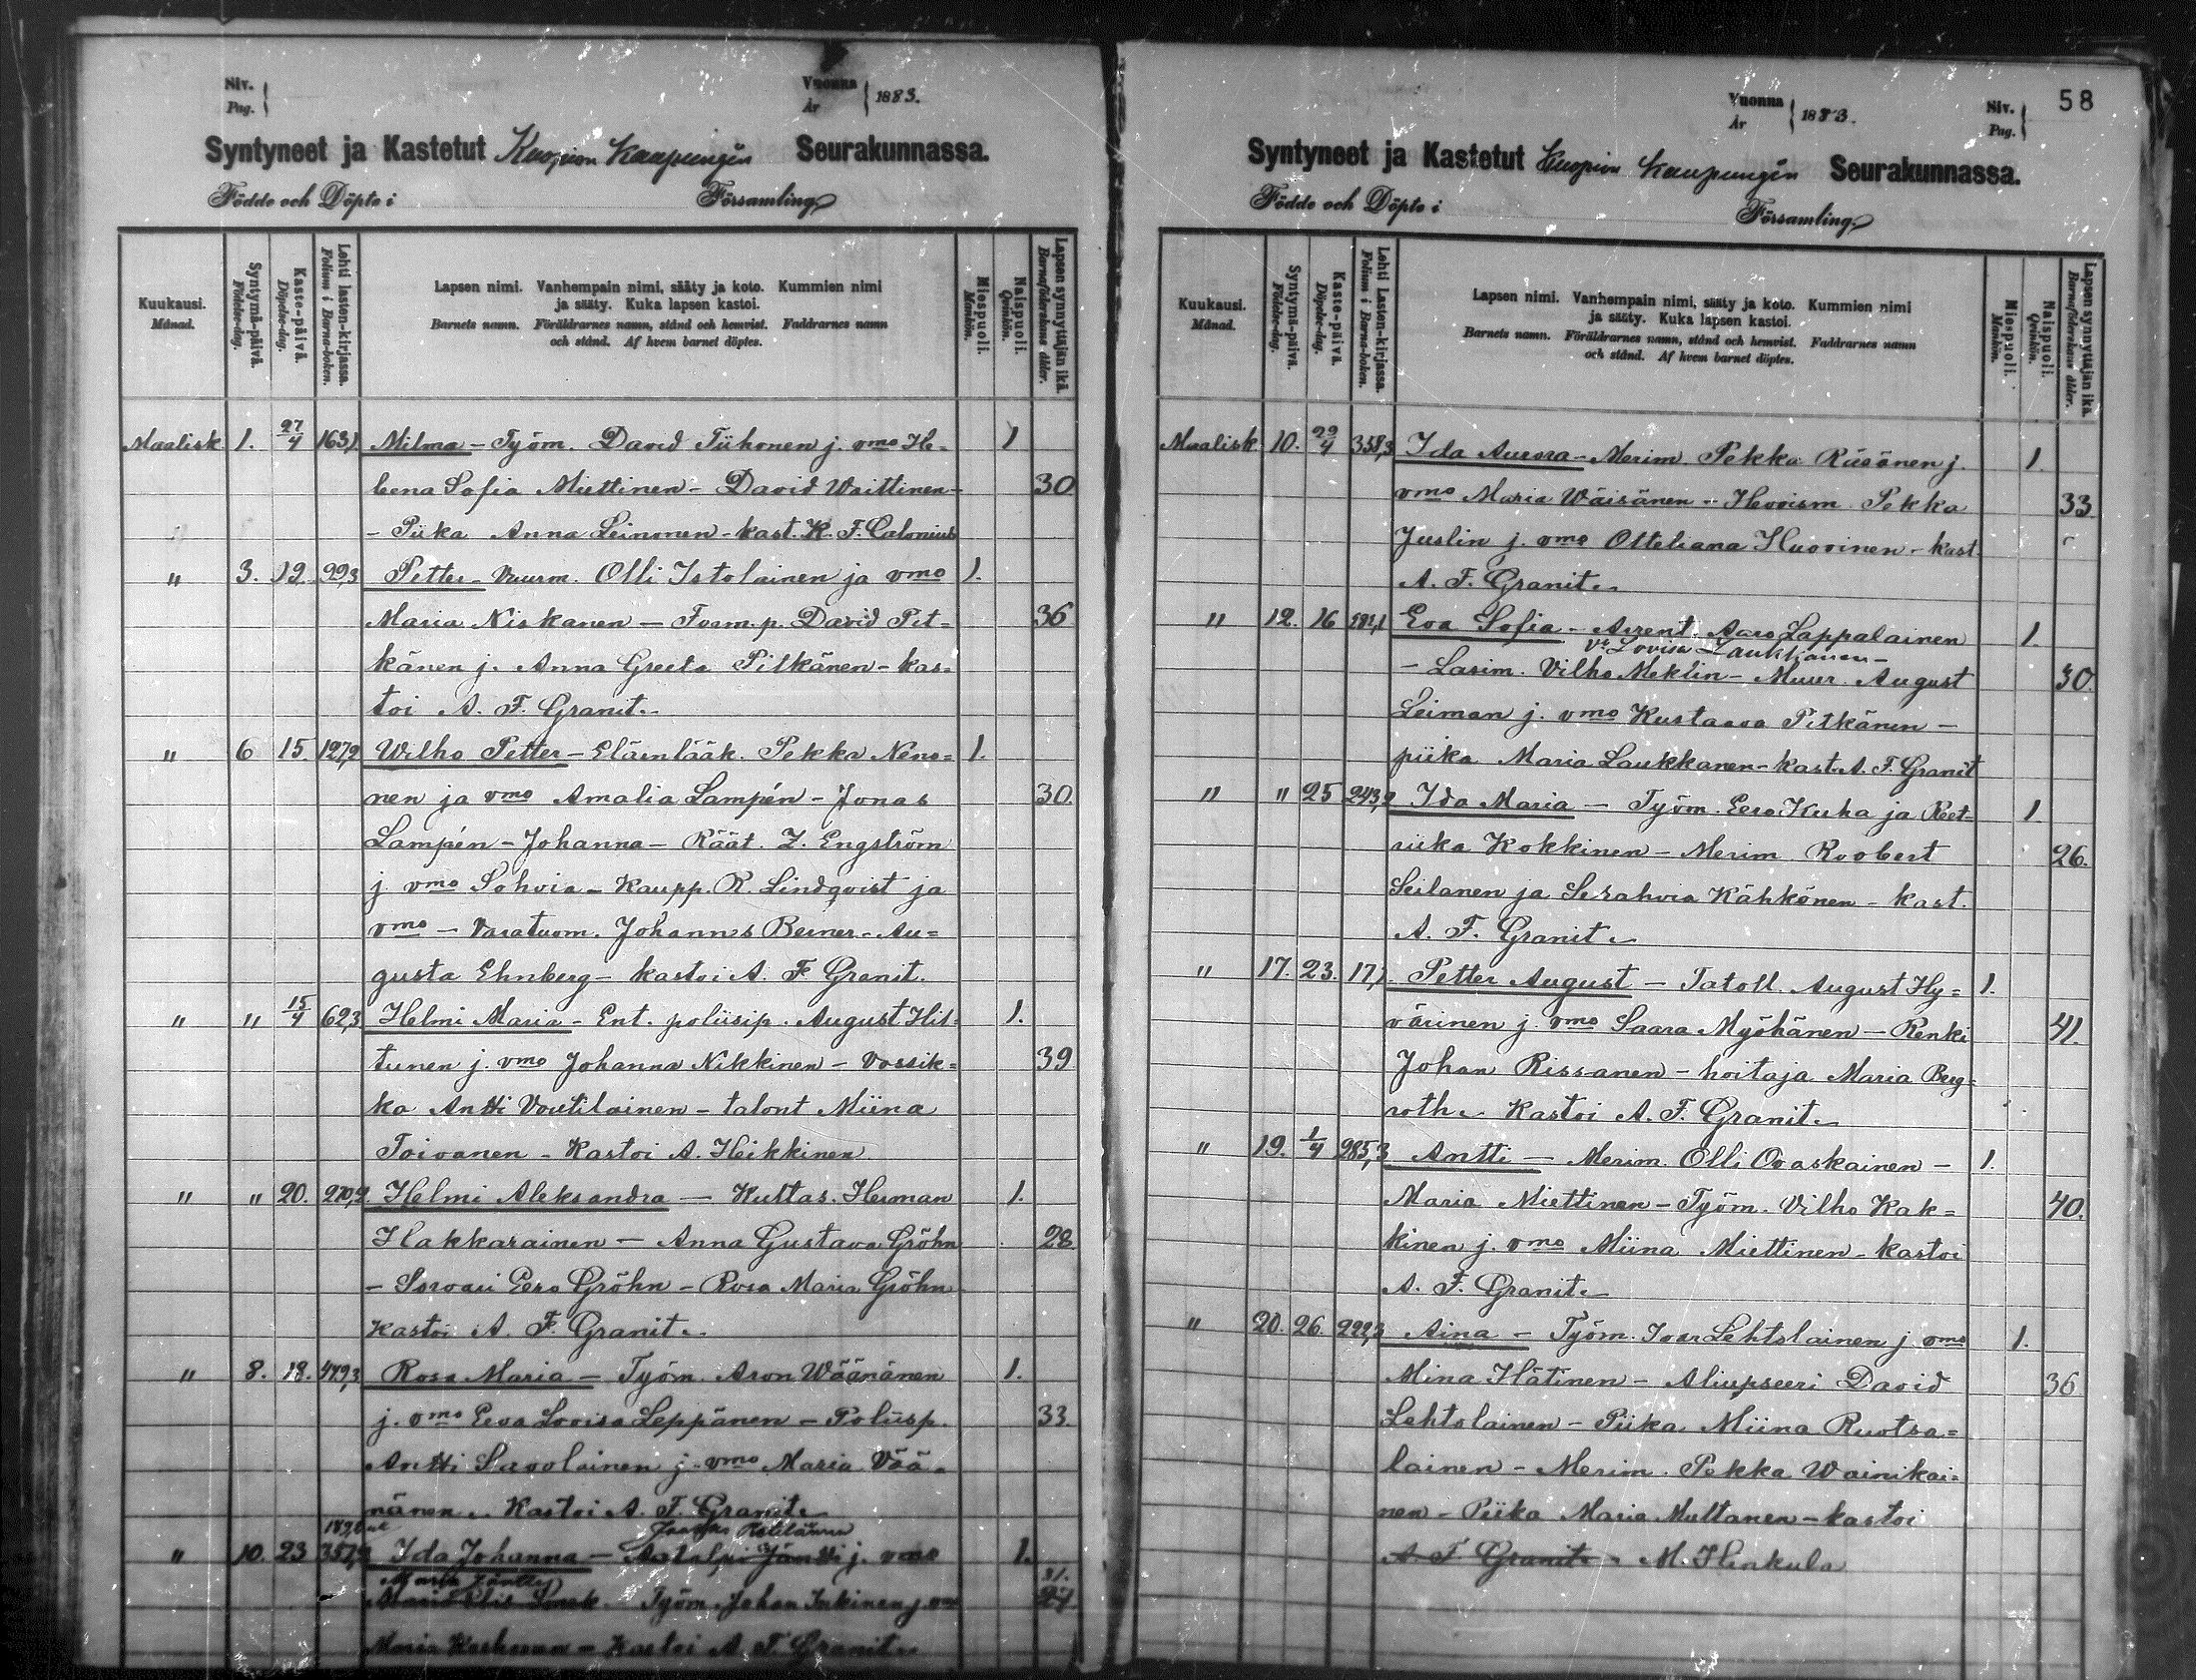 Siv.
Pag.
Vuonna
År
1883.
Syntyneet ja Kastetut Kuopion Kaupungin Seurakunnassa.
Födde och Döpte i Församling
Kuukausi.
Månad.
Syntymä-päivä.
Födelse-dag.
Kaste-päivä.
Döpelse-dag.
Lehti lasten-kirjassa.
Folium i Barna-boken.
Lapsen nimi. Vanhempain nimi, sääty ja koto. Kummien nimi
ja sääty. Kuka lapsen kastoi.
Barnets namn. Föräldrarnes namn, stånd och hemvist. Faddrarnes namn
och stånd. Af hvem barnet döptes.
Miespuoli.
Mankön.
Naispuoli.
Qvinkön.
Lapsen synnyttäjän ikä.
Barnaföderskans ålder.
Maalisk 1. 27/4 163,1 Milma – Työm. David Tiihonen j. vmo He- 1
leena Sofia Miettinen – David Waittinen – 30
– Piika Anna Leinonen – kast. K. F. Calonius
" 3. 19. 99,3 Petter – Vuurm. Olli Istolainen ja vmo 1.
Maria Niskanen – Form. p. David Pit= 36
känen j. Anna Greeta Pitkänen – kas=
toi A. F. Granit.
" 6 15. 127,2 Wilho Petter – Eläinlääk. Pekka Neno= 1.
nen ja vmo Amalia Lampén – Jonas 30.
Lampén – Johanna – Räät. Z. Engström
j. vmo Sohvia – Kaupp. R. Lindqvist ja
vmo – Varatuom. Johannes Berner – Au=
gusta Ehnberg – kastoi A. F. Granit.
" " 15/4 62,3 Helmi Maria – Ent. poliisip. August Hil= 1.
tunen j. vmo Johanna Nikkinen – Vossik= 39
ka Antti Voutilainen – talont Miina
Toivanen – Kastoi A. Heikkinen
" " 20. 270,2 Helmi Aleksandra – Kultas. Herman 1.
Hakkarainen – Anna Gustava Gröhn 28
– Sorvari Eero Gröhn – Rosa Maria Gröhn
Kastoi A. F. Granit.
" 8. 18. 479,3 Rosa Maria – Työm. Aron Wäänänen 1.
j. vmo Eeva Lovisa Leppänen – Poliisp. 33.
Antti Savolainen j. vmo Maria Vää=
nänen. Kastoi A. F. Granit.
" 10. 23 357,2 Ida Johanna – Jantti j. vmo 1.
Maria Jäntti 31.
Työm. Johan Inkinen j. vmo 27
Maria – Kastoi A. F. Granit.
Vuonna
År
1883.
Siv.
Pag.
58
Syntyneet ja Kastetut Kuopion Kaupungin Seurakunnassa.
Födde och Döpte i Församling
Kuukausi.
Månad.
Syntymä-päivä.
Födelse-dag.
Kaste-päivä.
Döpelse-dag.
Lehti Lasten-kirjassa.
Folium i Barna-boken.
Lapsen nimi. Vanhempain nimi, sääty ja koto. Kummien nimi
ja sääty. Kuka lapsen kastoi.
Barnets namn. Föräldrarnes namn, stånd och hemvist. Faddrarnes namn
och stånd. Af hvem barnet döptes.
Miespuoli.
Mankön.
Naispuoli.
Qvinkön.
Lapsen synnyttäjän ikä.
Barnaföderskans ålder.
Maalisk. 10. 22/4 358,3 Ida Aurora – Merim. Pekka Räsänen j. 1.
vmo Maria Wäisänen – Hovism Pekka 33.
Juslin j. vmo Otteliana Huovinen – kast.
A. F. Granit.
" 12. 16 Eva Sofia – Arent. Aaro Lappalainen 1.
vo Lovisa Laukkanen –
– Lasim. Vilho Meklin – Muur. August 30.
Leiman j. vmo Kustaava Pitkänen –
piika Maria Laukkanen – kast. A. F. Granit
" " 25 243,2 Ida Maria – Työm. Eero Kuha ja Reet- 1.
riika Kokkinen – Merim Roobert 26.
Seilanen ja Serahvia Kähkönen – kast.
A. F. Granit.
" 17. 23. 17,1 Petter August – Tatoll. August Hy= 1.
värinen j. vmo Saara Myöhänen – Renki 41.
Johan Rissanen – hoitaja Maria Berg-
roth. Kastoi A. F. Granit.
" 19. 1/4 285,3 Antti – Merim. Olli Ovaskainen – 1.
Maria Miettinen – Työm. Vilho Kak= 40.
kinen j. vmo Miina Miettinen – kastoi
A. F. Granit.
" 20. 26. 222,3 Aina – Työm. Ivar Lehtolainen j. vmo 1.
Mina Hätinen – Aliupseeri David 36
Lehtolainen – Piika Miina Ruotsa=
lainen – Merim. Pekka Wainikai=
nen – Piika Maria Multanen – kastoi
A. F. Granit. M. Henkula